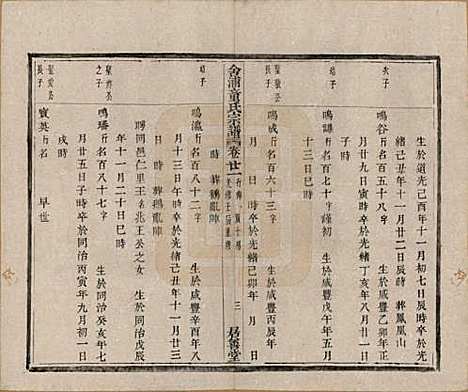 生於道光己酉十一月初七日辰時卒於光
緒己丑年十一月廿二日辰時 葬鳳凰山
次子 鳴谷 行名百五十八 生於咸豐乙卯年正
月廿九日寅時卒於光緒丁亥年八月廿一日
子時
培子 鳴謙 行名百七十 字謹初 生於咸豐戊午年五月
十三日巳時
長子 鳴成 行名百六十三 字 生於咸豐丙辰年
月 日 時卒於光緒己卯年 月
日 時 葬鵝亂陣
含浦章氏宗譜 卷廿一 三 居善堂
培子 鳴瀛 行名百八十二 字 生於咸豐辛酉年八
月十三日午時卒於光緒己丑年十一月廿三
聘同邑仁里王名兆王公之女 生於同治戊辰
年十一月二十日巳時
之子 鳴璠 行名百八十七 字 生於同治癸亥年七
月廿五日子時卒於同治丙寅年九月初一日
戌時
長子 寶英 行名 早世